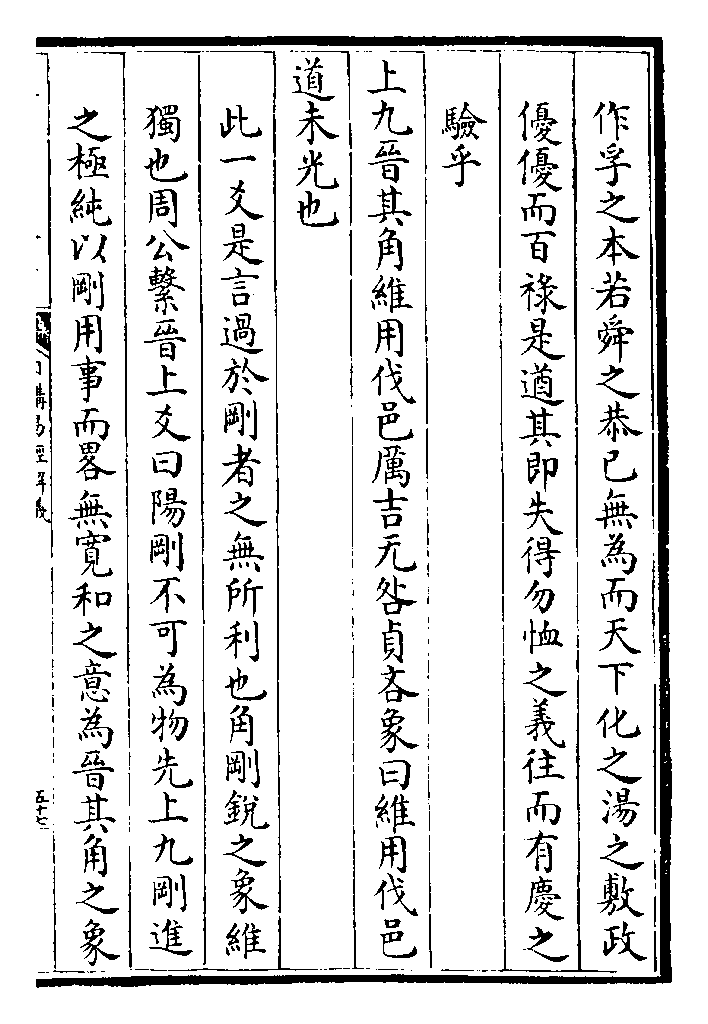 作孚之本若舜之恭已無為而天下化之湯之敷政
優優而百祿是遒其即失得勿恤之義往而有慶之
驗乎
上九晉其角維用伐邑厲吉无咎貞吝象曰維用伐邑
道未光也
此一爻是言過於剛者之無所利也角剛銳之象維
獨也周公繫晉上爻曰陽剛不可為物先上九剛進
之極純以剛用事而畧無寬和之意為晉其角之象
日講易經解義